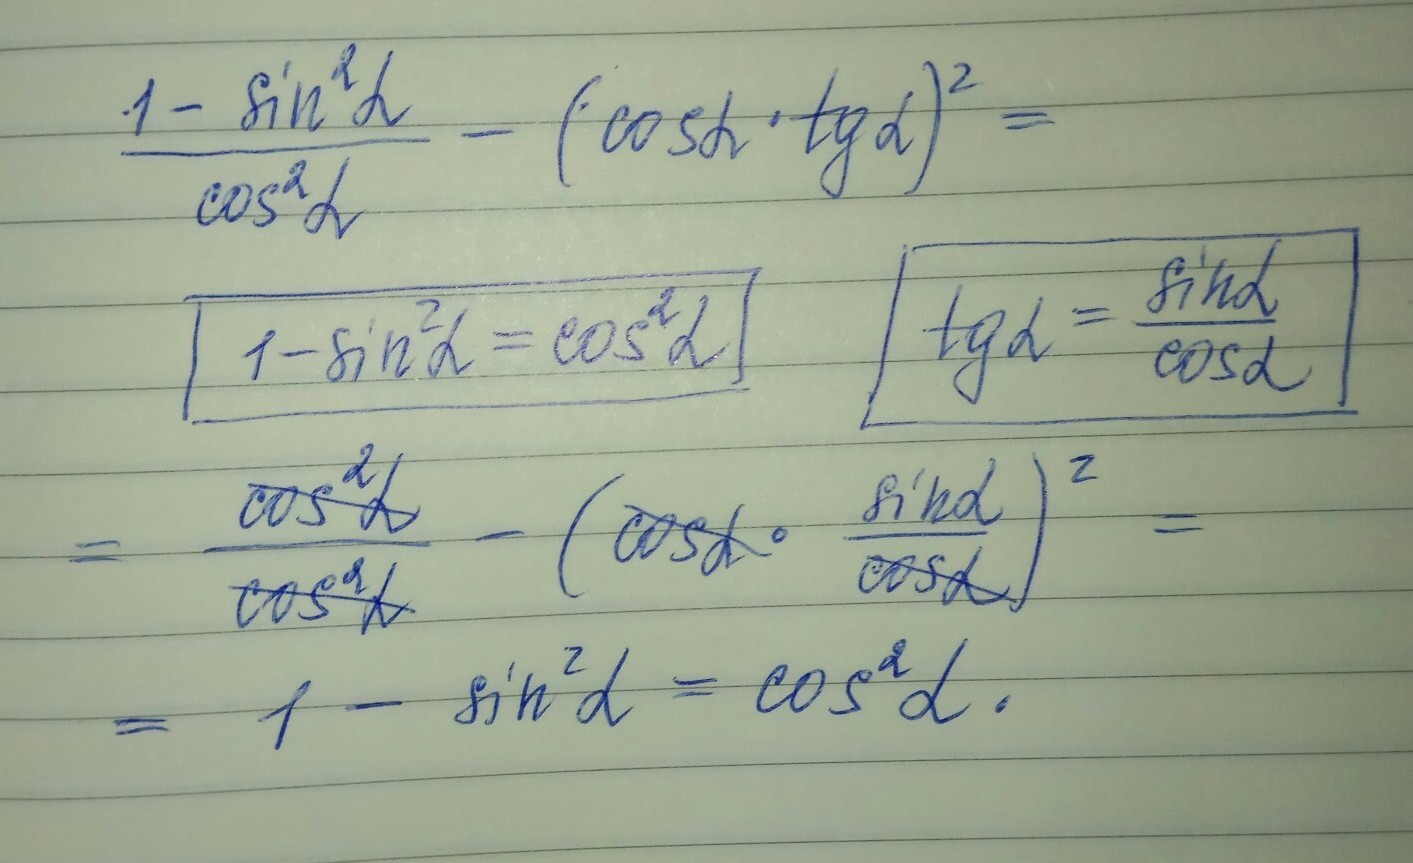 (1 - sin²α)/(cos²α) - (cosα · tgα)² =
1 - sin²α = cos²α    tgα = sinα/cosα
= cos²α/cos²α - (cosα · sinα/cosα)² =
= 1 - sin²α = cos²α.